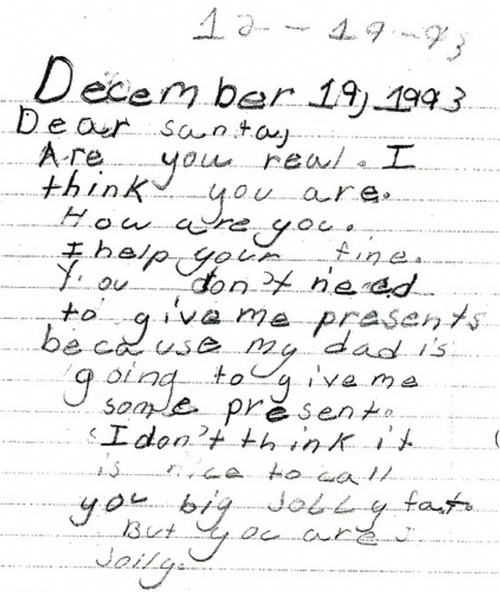 12-19-93
December 19, 1993
Dear santa,
Are you real. I
think you are.
How are you.
I help your fine.
You don't need
to give me presents
because my dad is
going to give me
some present.
I don't think it
is nice to call
you big Jolly fat.
But you are
Jolly.